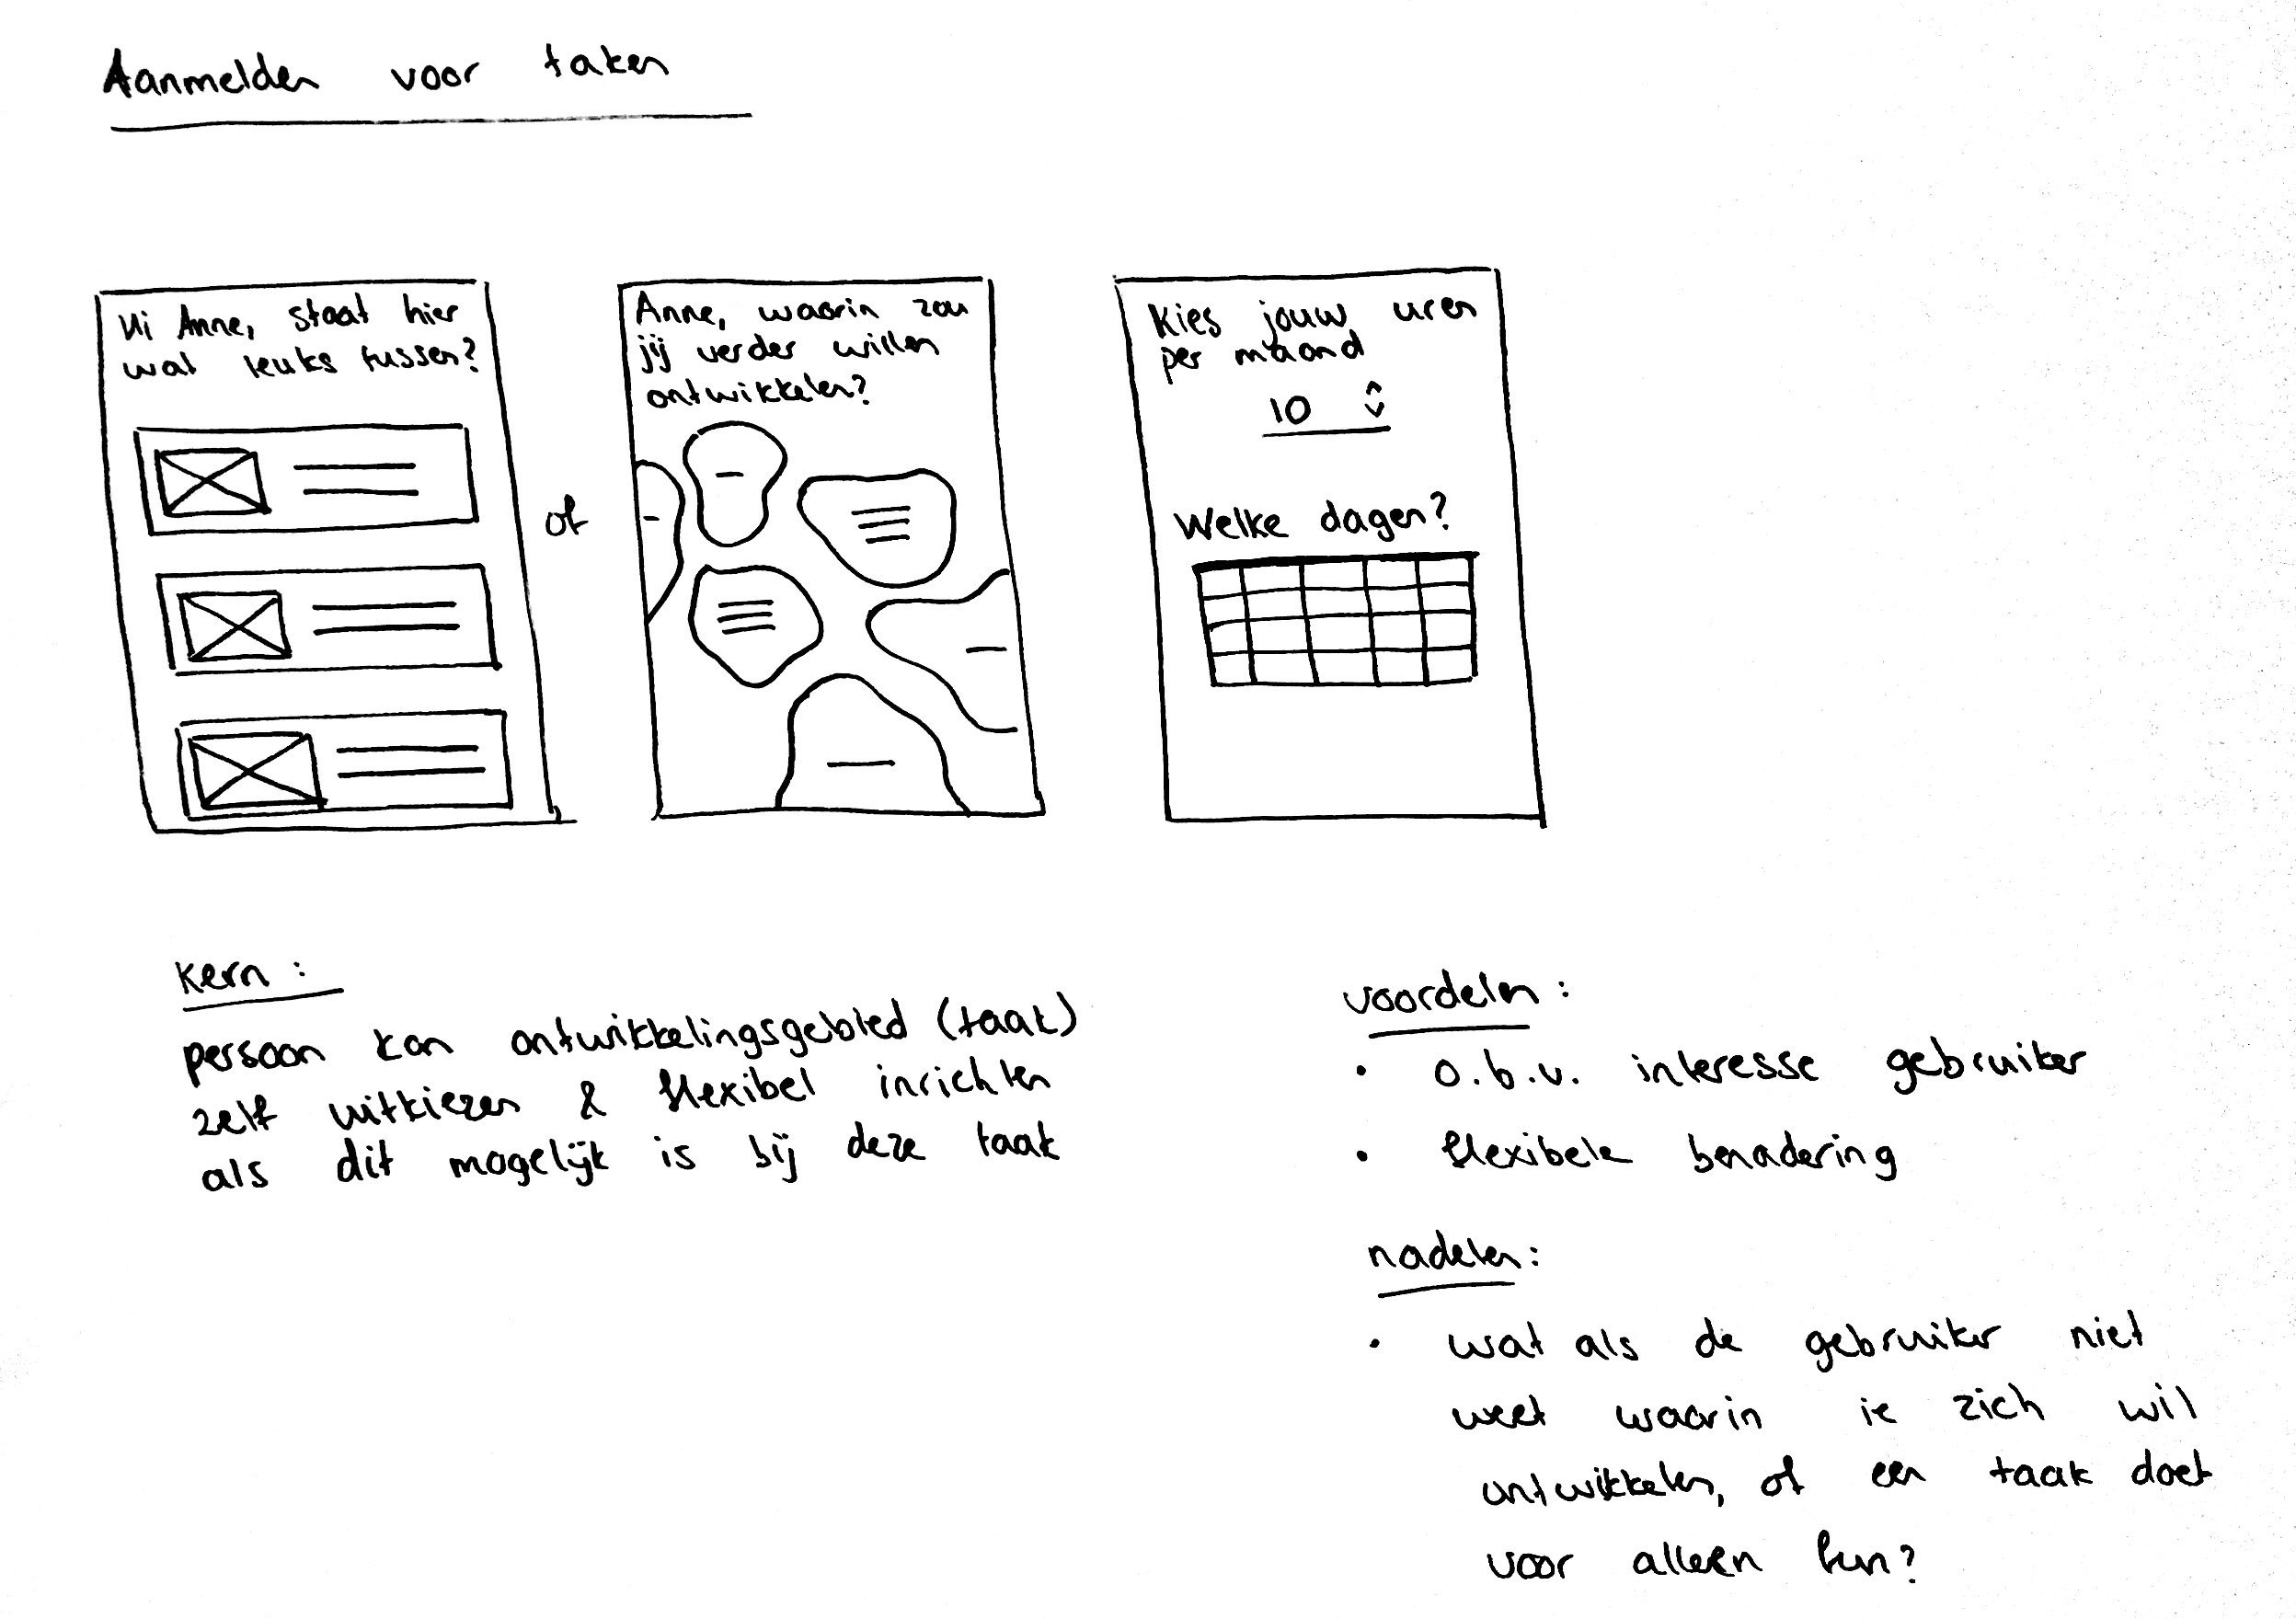 Aanmelden voor taken
Hi Anne, staat hier
wat leuks tussen?
of
Anne, waarin zou
jij verder willen
ontwikkelen?
Kies jouw uren
per maand
10
Welke dagen?
kern:
persoon kan ontwikkelingsgebied (taak)
zelf uitkiezen & flexibel inrichten
als dit mogelijk is bij deze taak
voordelen:
• o.b.v. interesse gebruiker
• flexibele benadering
nadelen:
• wat als de gebruiker niet
weet waarin ie zich wil
ontwikkelen, of een taak doet
voor alleen fun?